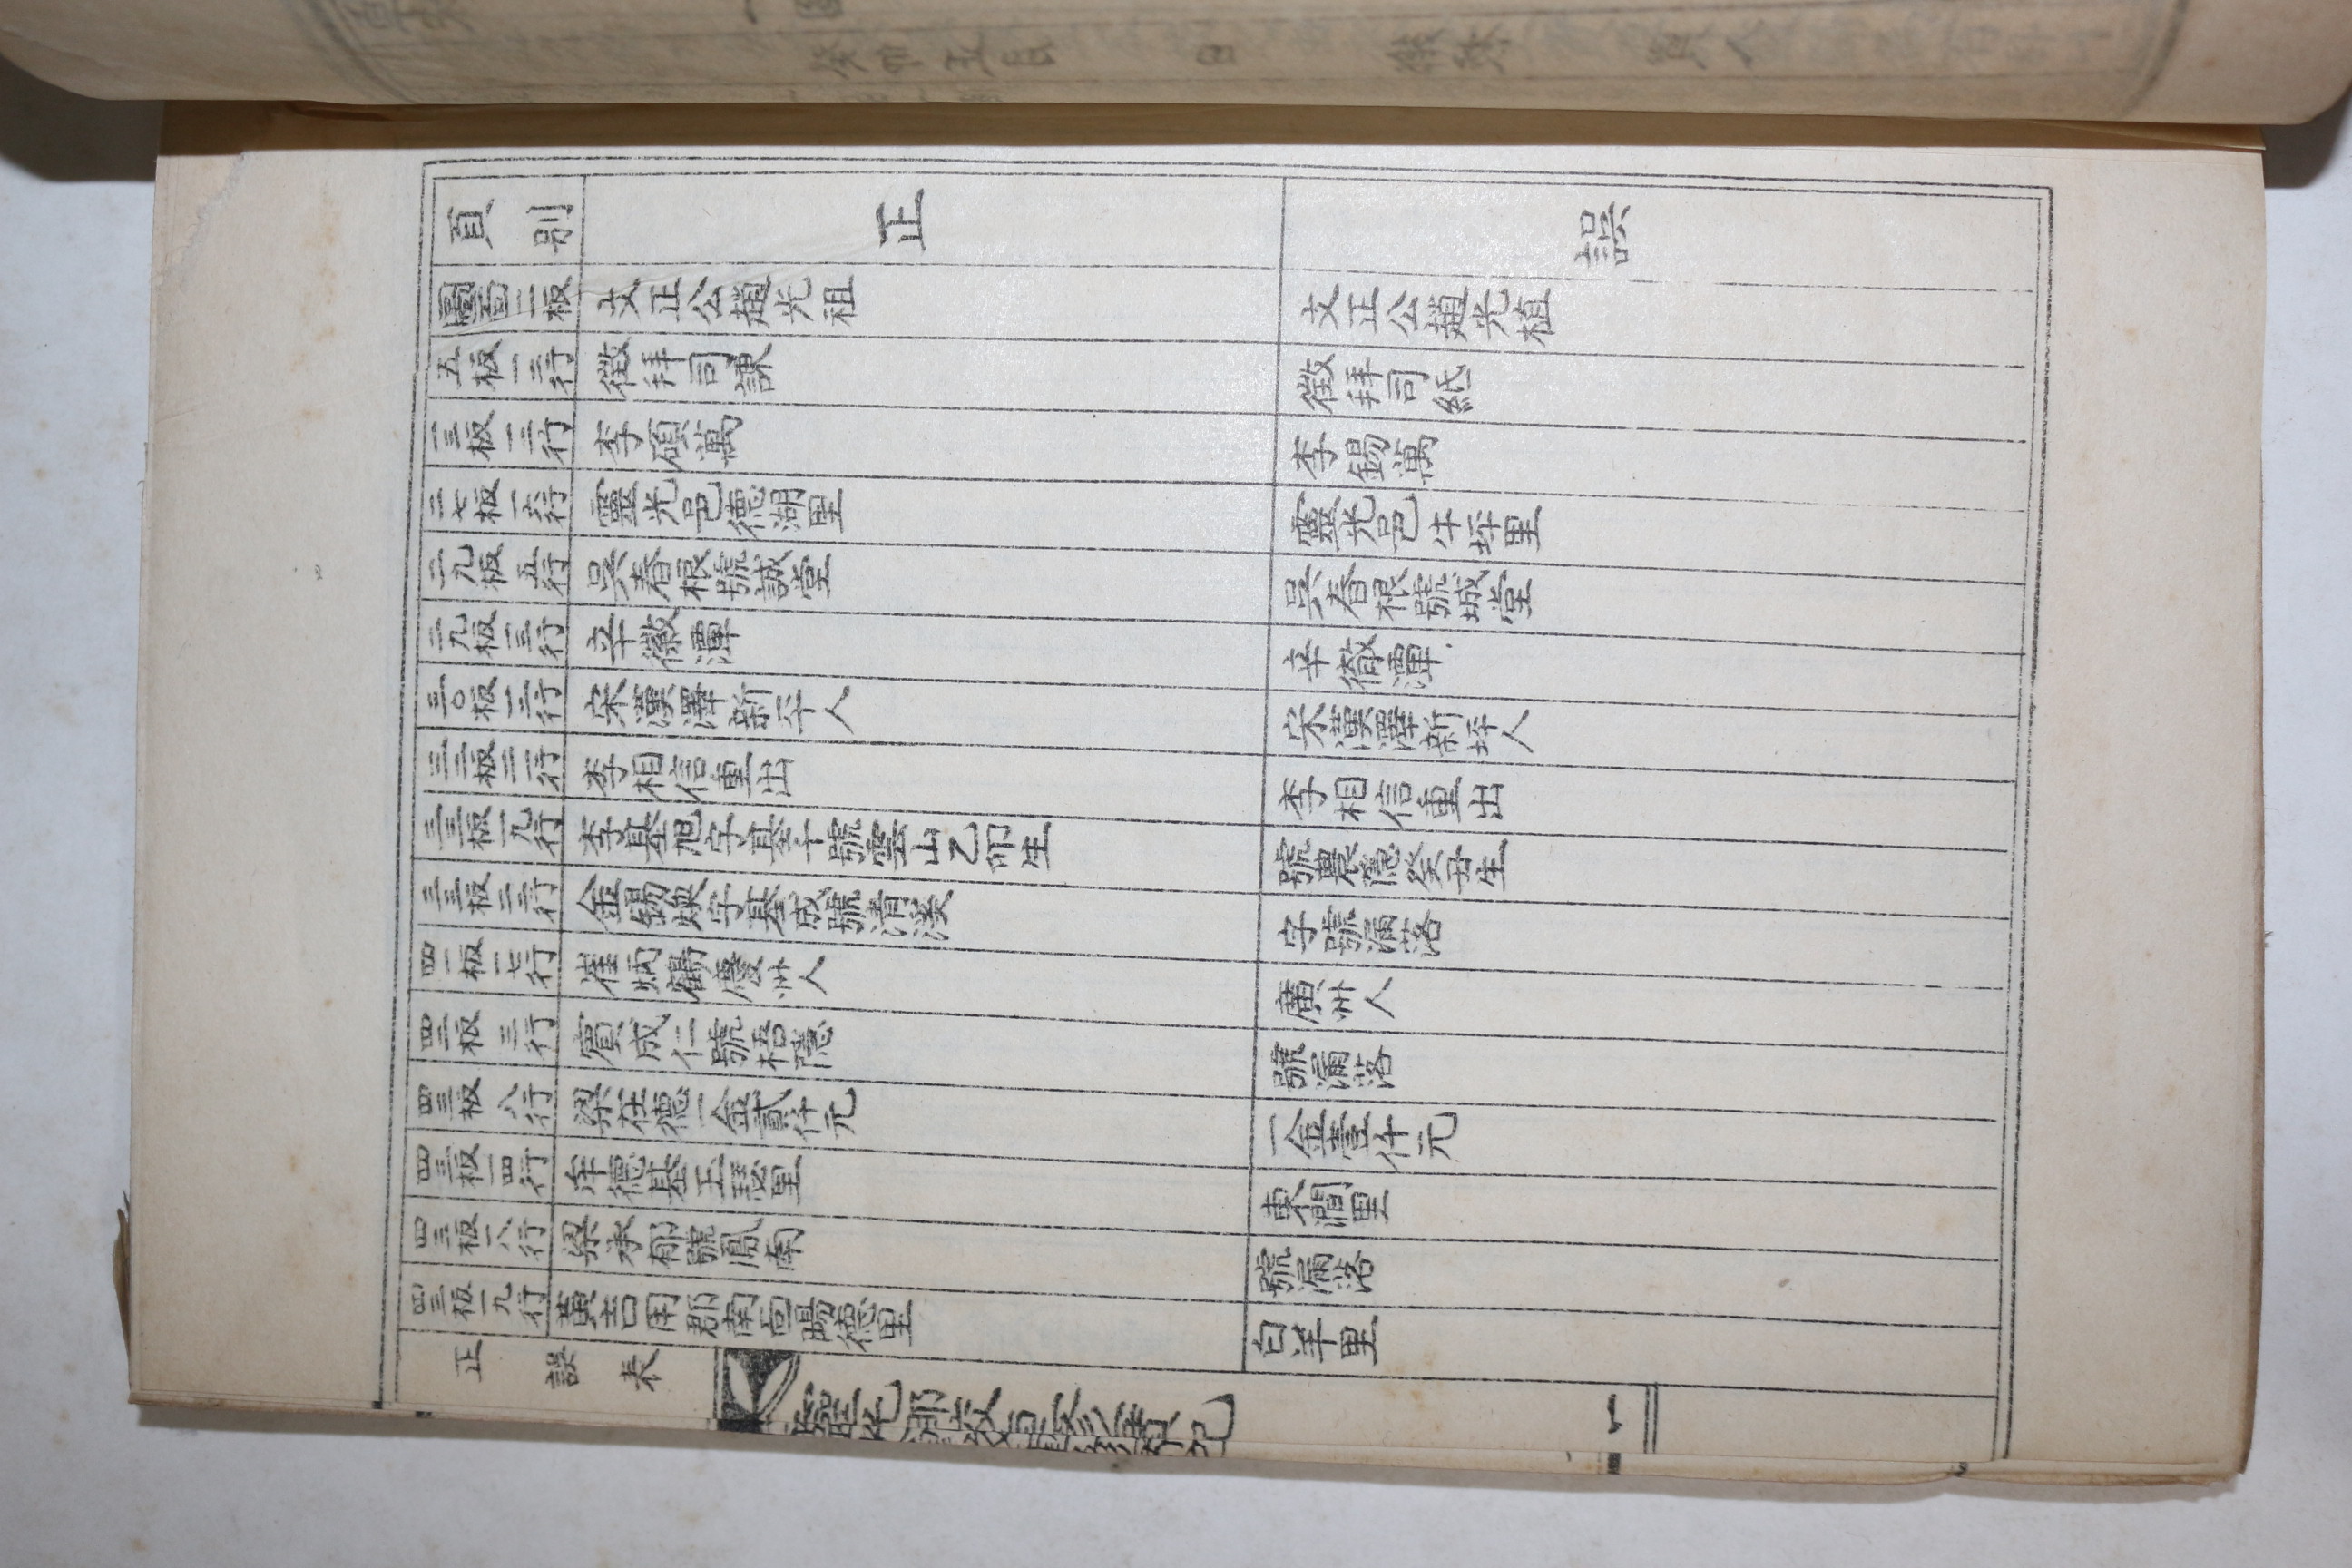 頁別 正 誤
圖面二板 文正公趙光祖 文正公趙光植
五板一二行 徵拜司諫 徵拜司紙
一三板一二行 李碩萬 李錫萬
二七板一六行 靈光邑德湖里 靈光邑牛坪里
二九板五行 吳春根號誠堂 吳春根號城堂
二九板一三行 辛徽潭 辛徹潭
三〇板一二行 宋漢澤新平人 宋漢澤新坪人
三二板二一行 李相信重出 李相信重出
三三板一九行 李基旭字基千號雲山乙卯生 號農隱癸丑生
三三板二二行 金錫煥字基成號清溪 字號漏落
四一板一七行 崔炳鶴慶州人 廣州人
四二板三行 賓成仁號梧隱 號漏落
四三板八行 梁在德一金貳仟元 一金壹仟元
四三板一四行 牟德基玉瑟里 東澗里
四三板一八行 梁承郁號鳳南 號漏落
四三板一九行 黃吉用郡南面暘德里 白羊里
正誤表 一